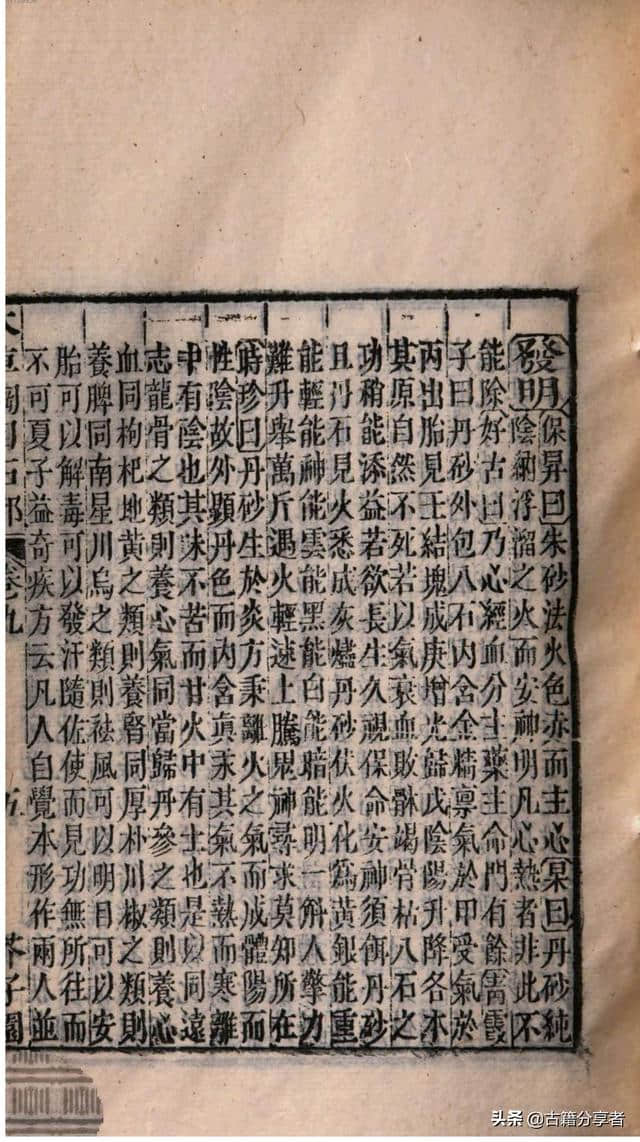 發明保昇曰朱砂法火色赤而主心杲曰丹砂純
陰納浮溜之火而安神明凡心熱者非此不
能除好古曰乃心經血分主藥主命門有餘靑霞
子曰丹砂外包八石內含金精稟氣於甲受氣於
丙出胎見壬結塊成庚增光歸戊陰陽升降各本
其原自然不死若以氣衰血敗骸竭骨枯八石之
功稍能添益若欲長生久視保命安神須餌丹砂
且丹石見火悉成灰燼丹砂伏火化爲黃銀能重
能輕能神能雲能黑能白能暗能明一斛人擎力
難升舉萬斤遇火輕速上騰鬼神尋求莫知所在
時珍曰丹砂生於炎方秉離火之氣而成體陽而
性陰故外顯丹色而內含眞汞其氣不熱而寒離
中有陰也其味不苦而甘火中有土也是以同遠
志龍骨之類則養心氣同當歸丹參之類則養心
血同枸杞地黃之類則養腎同厚朴川椒之類則
養脾同南星川烏之類則祛風可以明目可以安
胎可以解毒可以發汗隨佐使而見功無所往而
不可夏子益奇疾方云凡人自覺本形作兩人並
本草綱目石部 卷九 五 芥子園
头条 @古籍分享者